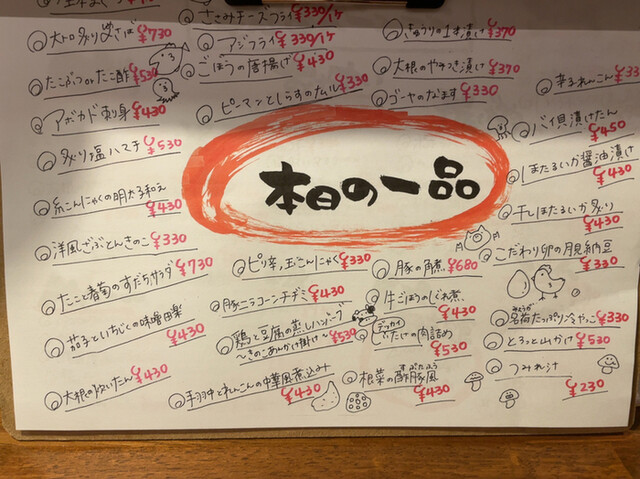 大トロ炙り〆さば ¥730
たこぶつorたこ酢 ¥530
アボカド刺身 ¥430
炙り塩ハマチ ¥530
糸こんにゃくの明太子和え ¥430
洋風ざぶとんきのこ ¥330
たこと香菊のすだちサラダ ¥730
茄子といちじくの味噌田楽 ¥430
大根の炊いたん ¥430
ささみチーズフライ ¥330/1ケ
アジフライ ¥330/1ケ
ごぼうの唐揚げ ¥430
ピーマンとしらすのナムル ¥330
きゅうりの1本漬け ¥370
大根のやみつき漬け ¥370
ゴーヤのなます ¥330
辛子れんこん ¥33
バイ貝漬けたん ¥450
ほたるいか醤油漬け ¥430
干しほたるいか炙り ¥430
こだわり卵の月見納豆 ¥330
本日の一品
ピリ辛玉こんにゃく ¥330
豚ニラコーンチヂミ ¥430
鶏と豆腐の蒸しハンバーグ
〜きのこあんかけ掛け〜 ¥530
手羽中とれんこんの中華風煮込み ¥430
豚の角煮 ¥680
牛ごぼうのしぐれ煮 ¥430
デッカイ
しいたけの肉詰め ¥530
根菜の酢豚風 ¥430
すぶたふう
みょうが
名荷たっぷり冷やっこ ¥330
とろっと山かけ ¥530
つみれ汁 ¥230